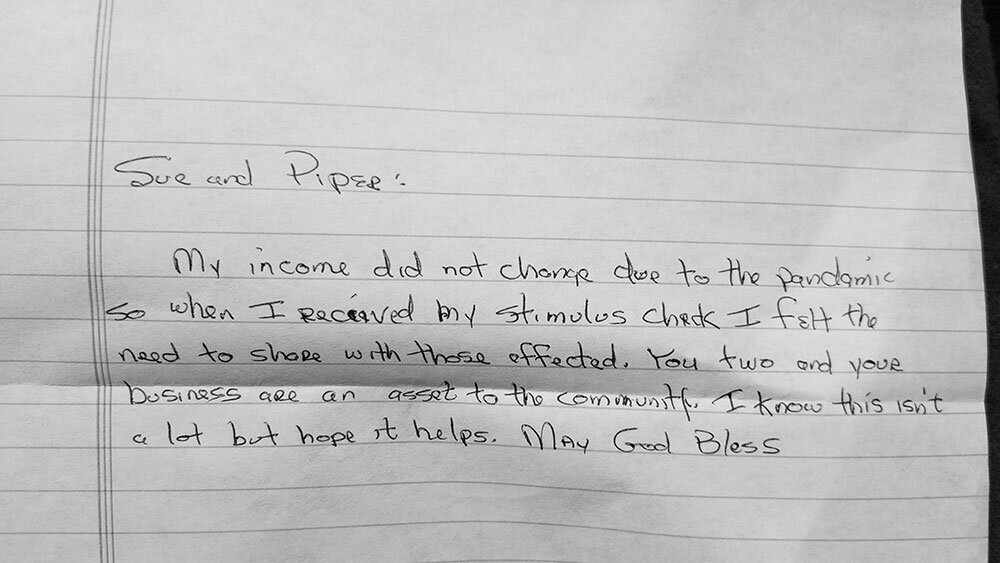 Sue and Piper:
My income did not change due to the pandamic
so when I received my stimulus check I felt the
need to share with those effected. You two and your
business are an asset to the community. I know this isn't
a lot but hope it helps. May God Bless